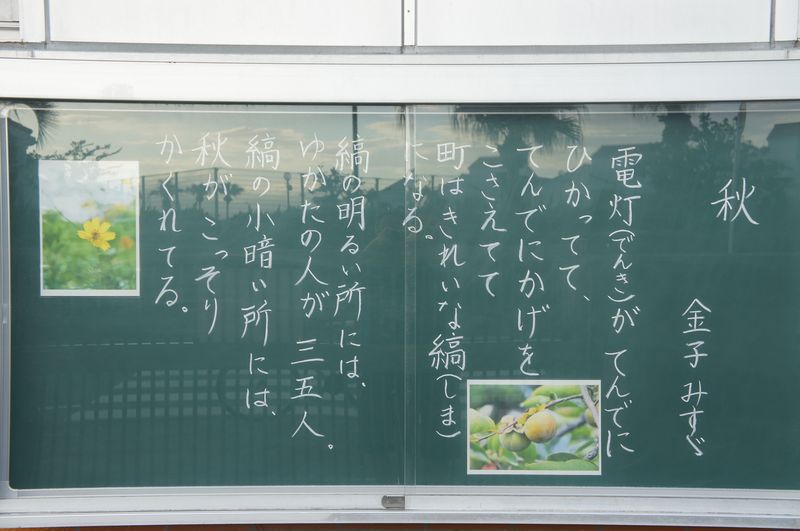 秋
金子みすゞ
電灯(でんき)が てんでに
ひかってて、
てんでにかげを
こさえてて
町はきれいな縞(しま)
になる。
縞の明るい所には、
ゆかたの人が 三五人。
縞の小暗い所には、
秋が こっそり
かくれてる。